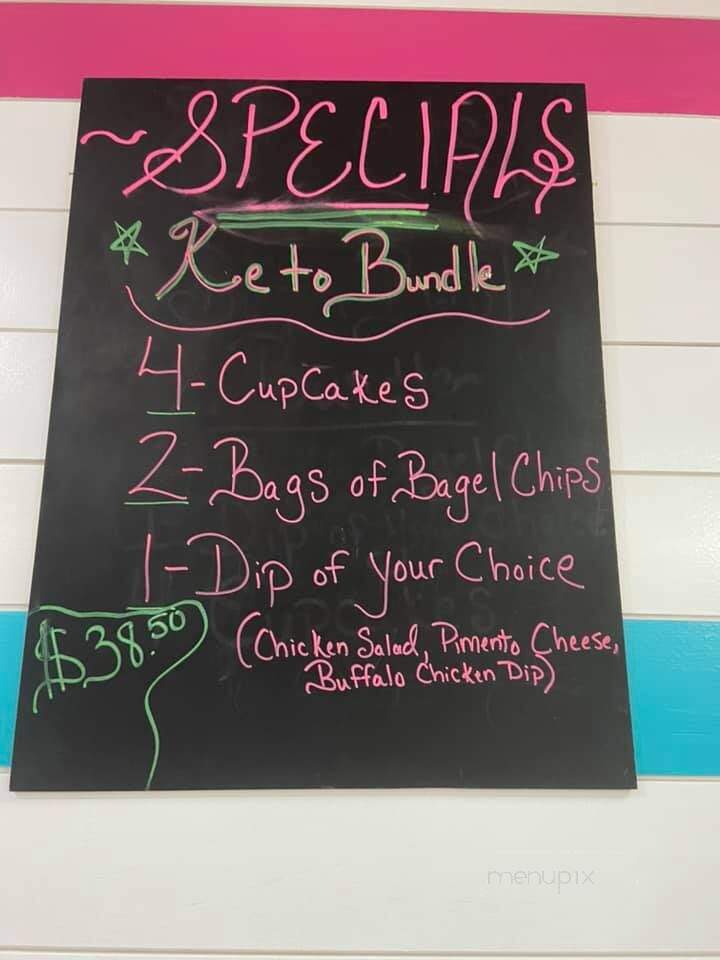 ~SPECIALS
Keto Bundle
4-CupCakes
2-Bags of Bagel Chips
1-Dip of your Choice
(Chicken Salad, Pimento Cheese,
Buffalo Chicken Dip)
$38.50
menupix